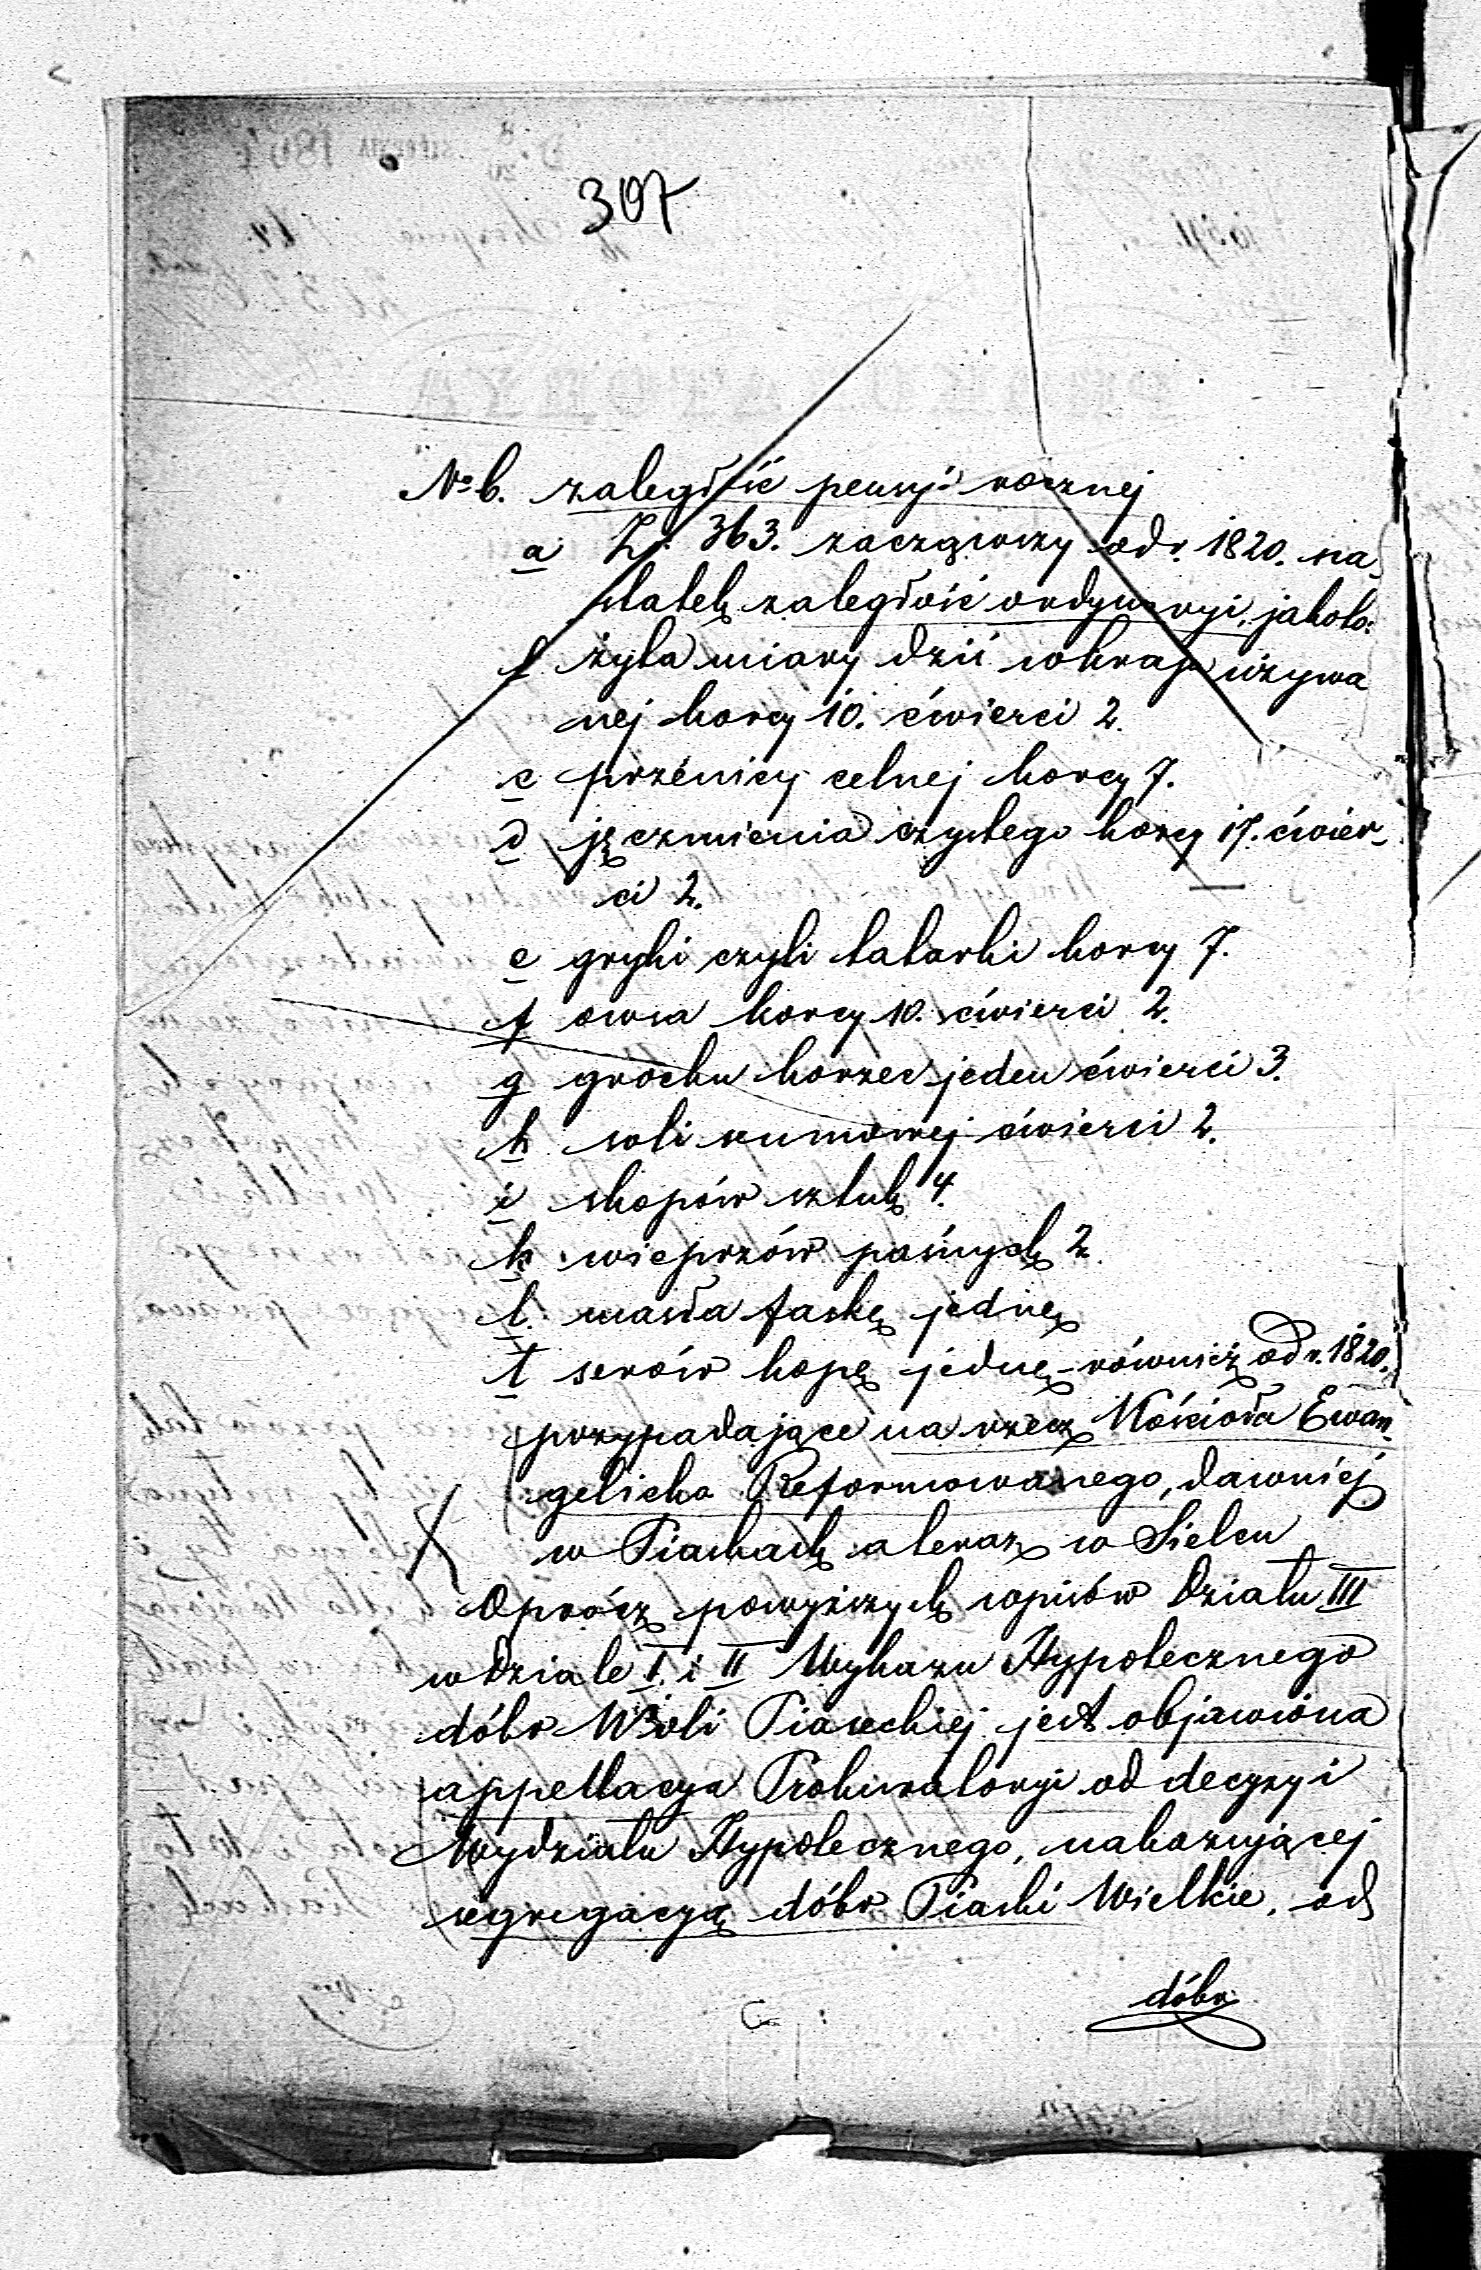 307
No 6. zaległość pensyi rocznej
a Zł. 363. zacząwszy od r. 1820. na
statek zaległość ordynaryi, jakoto:
b żyta miary dziś w kraju używa
nej korcy 10. ćwierci 2.
c pszenicy celnej korcy 7.
d jęczmienia czystego korcy 17. ćwier-
ci 2.
e gryki czyli tatarki korcy 7.
f owsa korcy 10. ćwierci 2.
g grochu korzec jeden ćwierci 3.
h soli rumowej ćwierci 2.
i skopów sztuk 4.
k wieprzów paśnych 2.
l. masła faskę jednę
ł serów kopę jednę - również od r. 1820.
przypadające na rzecz Kościoła Ewan-
gelicko Reformowanego, dawniej
w Piaskach a teraz w Sielcu
Oprócz powyższych wpisów Działu III
w dziale I. i II Wykazu Hypotecznego
dóbr Woli Piaseckiej jest objawiona
appellacya Prokuratoryi od decyzyi
Wydziału Hypotecznego, nakazującej
segregacyą dóbr Piaski Wielkie, od
dóbr